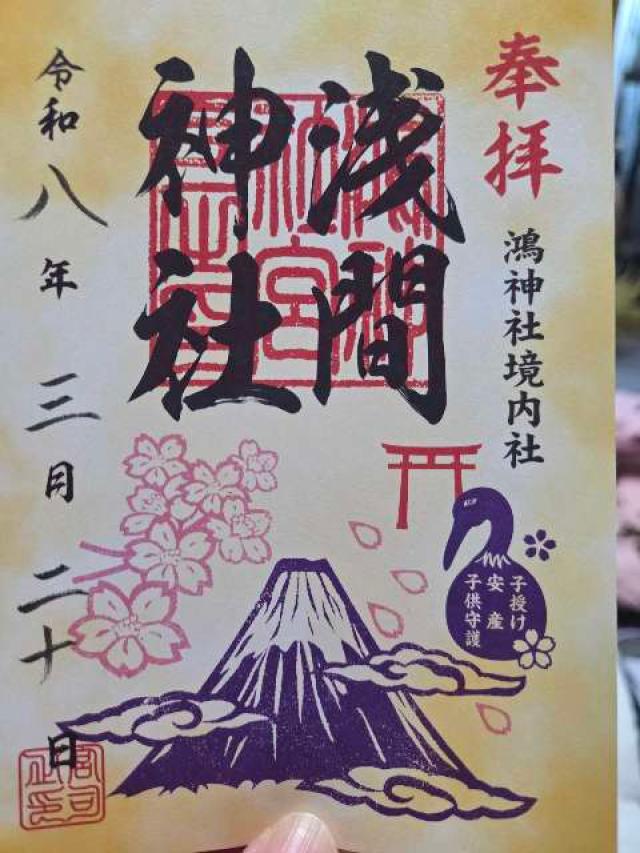 奉拝
鴻神社境内社
浅間
神社
子授け
安産
子供守護
令和八年三月二十日